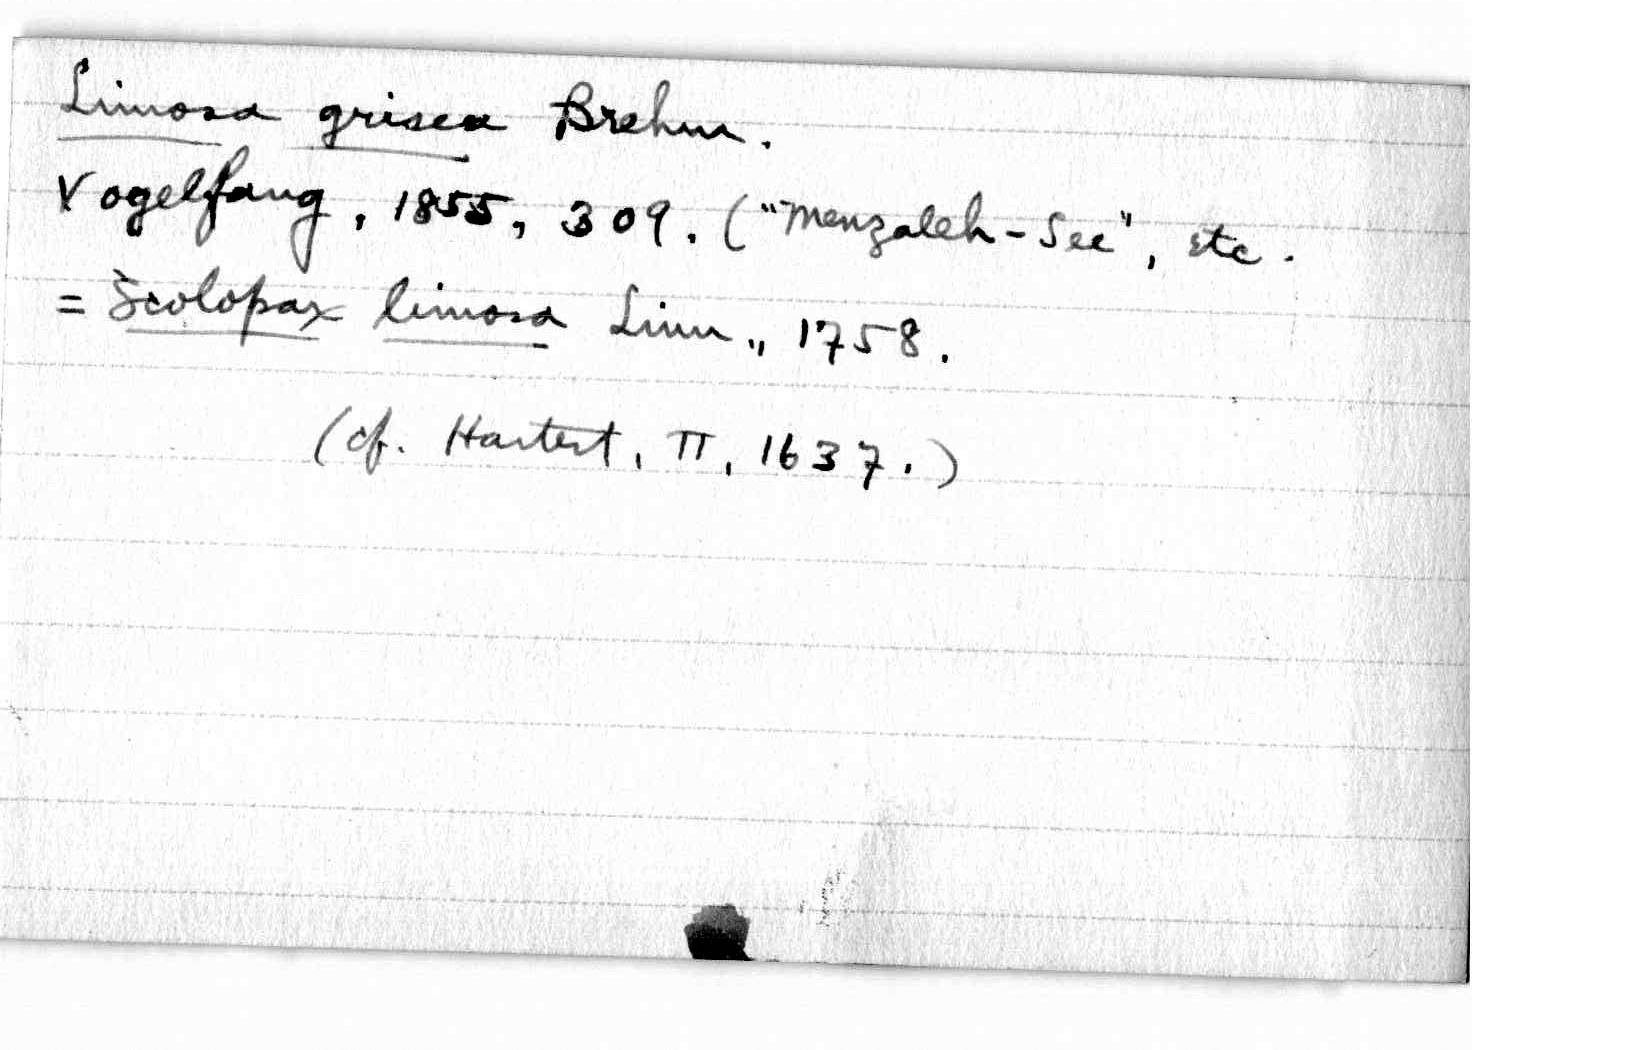 Limosa grisea Brehm.
Vogelfang, 1855, 309. ("Menzaleh-See", etc.
= Scolopax limosa Linn., 1758.
(cf. Hartert, II, 1637.)